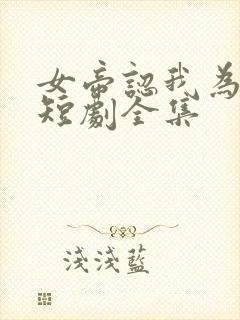 女帝認我為
短劇全集
淺淺藍